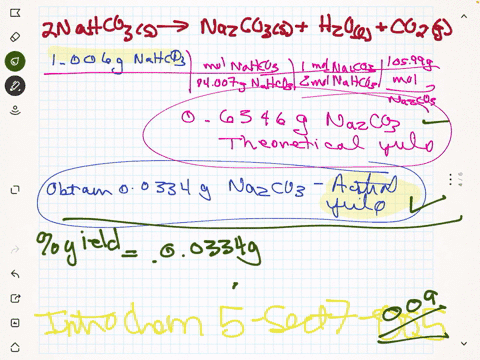 2NaHCO3(s) → Na2CO3(s) + H2O(l) + CO2(g)
1.006g NaHCO3 | mol NaHCO3 | 1 mol Na2CO3 | 105.99g
84.007g NaHCO3 | 2 mol NaHCO3 | mol
Na2CO3
0.6346g Na2CO3
Theoretical yield
Obtain 0.0334g Na2CO3 - Actual
yield
% yield = .0.0334g
Intro Chem 5-Sect 7-
009